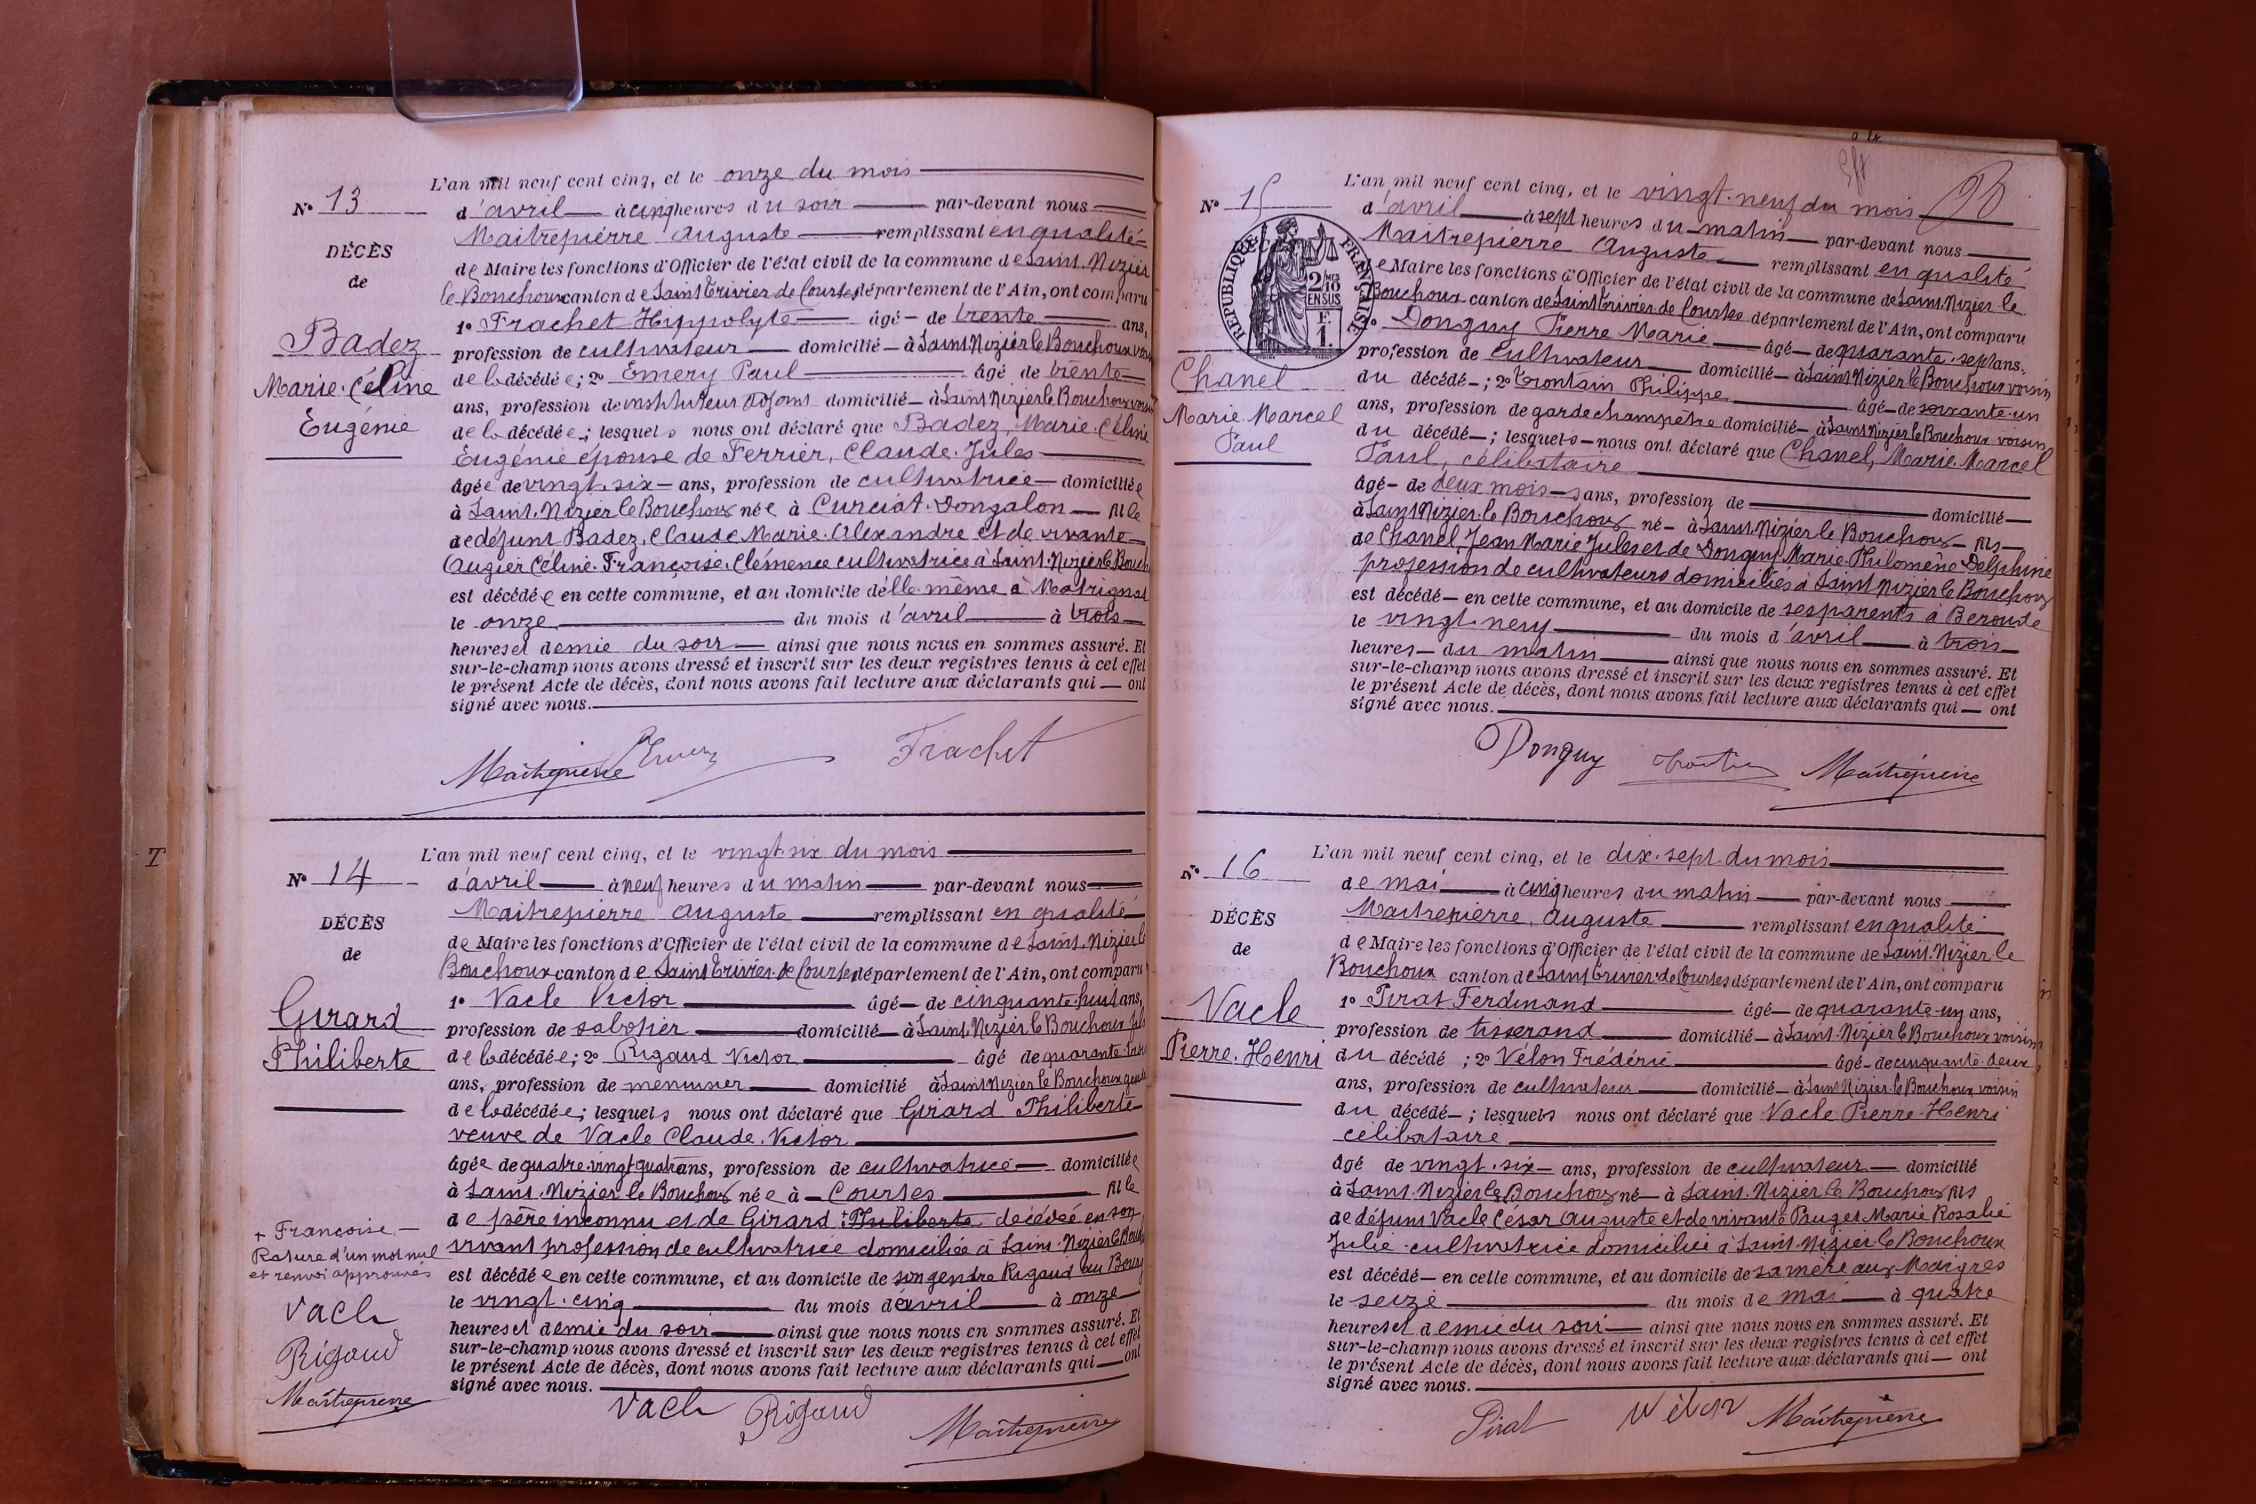 N° 13
DÉCÈS
de
Badez
Marie-Céline
Eugénie
L'an mil neuf cent cinq, et le onze du mois
d'avril à cinq heures du soir par-devant nous
Maitrepierre Auguste remplissant en qualité
de Maire les fonctions d'Officier de l'état civil de la commune de Saint-Nizier
le Bouchoux canton de Saint Trivier de Courtes département de l'Ain, ont comparu
1° Frachet Hippolyte âgé de trente ans,
profession de cultivateur domicilié à Saint Nizier le Bouchoux voisin
de la décédée; 2° Emery Paul âgé de trente
ans, profession de instituteur adjoint domicilié à Saint Nizier le Bouchoux voisin
de la décédée; lesquels nous ont déclaré que Badez, Marie-Céline
Eugénie épouse de Ferrier, Claude-Jules
âgée de vingt-six ans, profession de cultivatrice domiciliée
à Saint-Nizier le Bouchoux née à Curciat-Dongalon fille
de défunt Badez, Claude Marie-Alexandre et de vivante
Augier Céline-Françoise-Clémence cultivatrice à Saint-Nizier le Bouch
est décédée en cette commune, et au domicile d'elle-même à Matrignat
le onze du mois d'avril à trois
heures et demie du soir ainsi que nous nous en sommes assuré. Et
sur-le-champ nous avons dressé et inscrit sur les deux registres tenus à cet effet
le présent Acte de décès, dont nous avons fait lecture aux déclarants qui ont
signé avec nous.
Maitrepierre Emery Frachet
N° 14
DÉCÈS
de
Girard
Philiberte
+ Françoise
Rature d'un mot nul
et renvoi approuvés
Vacle
Rigaud
Maitrepierre
L'an mil neuf cent cinq, et le vingt-six du mois
d'avril à neuf heures du matin par-devant nous
Maitrepierre Auguste remplissant en qualité
de Maire les fonctions d'Officier de l'état civil de la commune de Saint-Nizier le
Bouchoux canton de Saint Trivier de Courtes département de l'Ain, ont comparu
1° Vacle Victor âgé de cinquante-huit ans,
profession de sabotier domicilié à Saint Nizier le Bouchoux fils
de la décédée; 2° Rigaud Victor âgé de quarante
ans, profession de menuisier domicilié à Saint Nizier le Bouchoux gendre
de la décédée; lesquels nous ont déclaré que Girard Philiberte
veuve de Vacle Claude-Victor
âgée de quatre-vingt-quatre ans, profession de cultivatrice domiciliée
à Saint-Nizier le Bouchoux née à Courtes fille
de père inconnu et de Girard + Philiberte décédée en son
vivant profession de cultivatrice domiciliée à Saint-Nizier le Bouch
est décédée en cette commune, et au domicile de son gendre Rigaud au Bourg
le vingt-cinq du mois d'avril à onze
heures et demie du soir ainsi que nous nous en sommes assuré. Et
sur-le-champ nous avons dressé et inscrit sur les deux registres tenus à cet effet
le présent Acte de décès, dont nous avons fait lecture aux déclarants qui ont
signé avec nous.
Vacle Rigaud Maitrepierre
N° 15
RÉPUBLIQUE FRANÇAISE
2/10 EN SUS
F. 1.
Chanel
Marie-Marcel
Paul
L'an mil neuf cent cinq, et le vingt-neuf du mois
d'avril à sept heures du matin par-devant nous
Maitrepierre Auguste remplissant en qualité
de Maire les fonctions d'Officier de l'état civil de la commune de Saint-Nizier le
Bouchoux canton de Saint Trivier de Courtes département de l'Ain, ont comparu
1° Donguy Pierre Marie âgé de quarante-sept ans,
profession de cultivateur domicilié à Saint Nizier le Bouchoux voisin
du décédé; 2° Trontain Philippe âgé de soixante-un
ans, profession de garde champêtre domicilié à Saint Nizier le Bouchoux voisin
du décédé; lesquels nous ont déclaré que Chanel, Marie-Marcel
Paul, célibataire
âgé de deux mois ans, profession de domicilié
à Saint Nizier-le Bouchoux né à Saint-Nizier le Bouchoux fils
de Chanel, Jean Marie Jules et de Donguy Marie-Philomène Delphine
profession de cultivateurs domiciliés à Saint Nizier le Bouchoux
est décédé en cette commune, et au domicile de ses parents à Beroude
le vingt-neuf du mois d'avril à trois
heures du matin ainsi que nous nous en sommes assuré. Et
sur-le-champ nous avons dressé et inscrit sur les deux registres tenus à cet effet
le présent Acte de décès, dont nous avons fait lecture aux déclarants qui ont
signé avec nous.
Donguy Maitrepierre
N° 16
DÉCÈS
de
Vacle
Pierre-Henri
L'an mil neuf cent cinq, et le dix-sept du mois
de mai à cinq heures du matin par-devant nous
Maitrepierre, Auguste remplissant en qualité
de Maire les fonctions d'Officier de l'état civil de la commune de Saint-Nizier le
Bouchoux canton de Saint Trivier de Courtes département de l'Ain, ont comparu
1° Pirat Ferdinand âgé de quarante-un ans,
profession de tisserand domicilié à Saint-Nizier le Bouchoux voisin
du décédé; 2° Vélon Frédéric âgé de cinquante-deux
ans, profession de cultivateur domicilié à Saint Nizier le Bouchoux voisin
du décédé; lesquels nous ont déclaré que Vacle Pierre-Henri
célibataire
âgé de vingt-six ans, profession de cultivateur domicilié
à Saint-Nizier le Bouchoux né à Saint-Nizier le Bouchoux fils
de défunt Vacle César Auguste et de vivante Pauget Marie Rosalie
Julie cultivatrice domiciliée à Saint-Nizier le Bouchoux
est décédé en cette commune, et au domicile de sa mère aux Maigres
le seize du mois de mai à quatre
heures et demie du soir ainsi que nous nous en sommes assuré. Et
sur-le-champ nous avons dressé et inscrit sur les deux registres tenus à cet effet
le présent Acte de décès, dont nous avons fait lecture aux déclarants qui ont
signé avec nous.
Pirat Vélon Maitrepierre